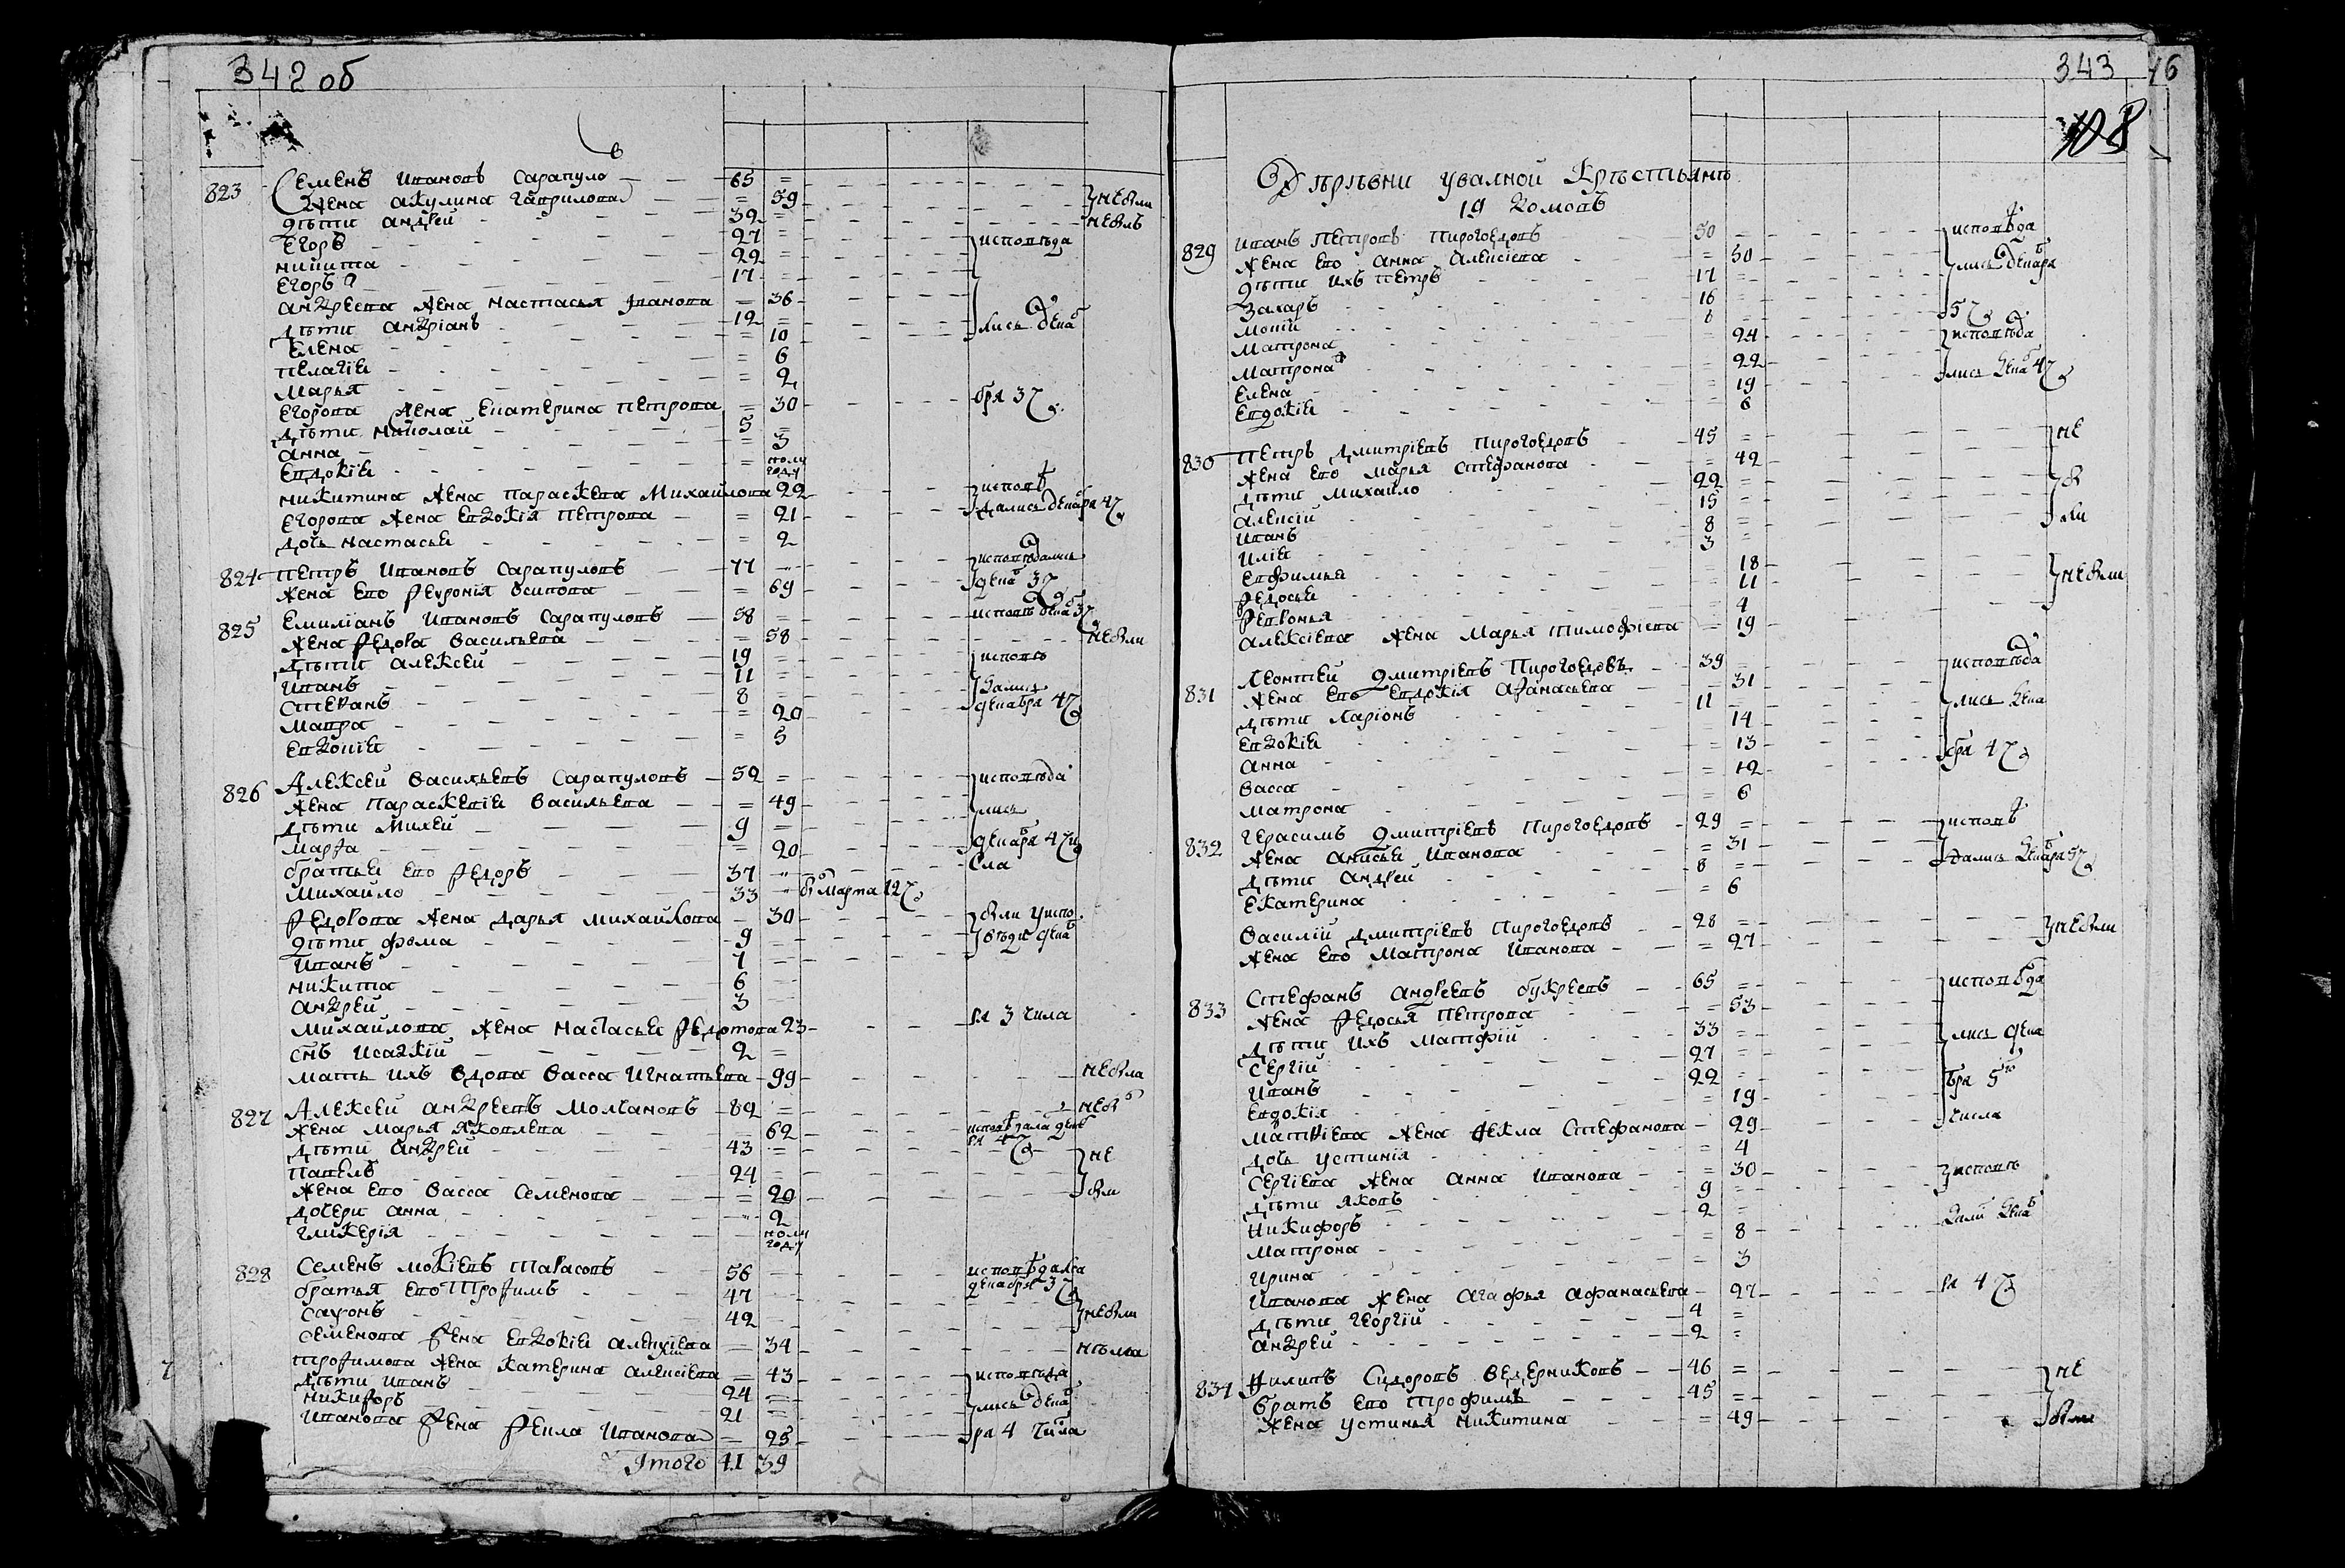 342 об
823 Семенъ Ивановъ Сарапуло — 65 =
Жена Акулина Гаврилова — = 59 невли
Дѣти Андрей 39 = невлъ
Егоръ 27 = исповѣда
Никита 22 =
Егоръ 17 =
Андреева Жена Настасья Иванова = 36
Дѣти Андріанъ 12 = лись дека
Елена = 10
Пелагіи = 6
Марья = 2
Егорова Жена Екатерина Петрова = 30 бря 3
Дѣти Николай 5 =
Анна = 3
Евдокіи = полу году
Никитина Жена Параскева Михайлова 22 исповѣ
Егорова Жена Евдокія Петрова = 21 дались декабря 4
дочь Настасьи = 2
824 Петръ Ивановъ Сарапуловъ 77 исповѣдались
Жена Ево Ѳевронія Осипова = 69 дека 3
825 Емиліанъ Ивановъ Сарапуловъ 58 = исповѣ дека 3
Жена Ѳедора Васильева = 58 невли
Дѣти Алексей 19 = исповѣ
Иванъ 11 = дались
Стефанъ 8 = декабря 4
Мавра = 20
Евдокіи = 5
826 Алексей Васильевъ Сарапуловъ 52 = исповѣда
Жена Параскевіи Васильева = 49 лись
Дѣти Михей 9 = декабря 4 чи
Марѳа = 20 сла
братьи Ево Ѳедоръ 37
Михайло 33 Марта 12
Ѳедорова Жена Дарья Михайлова 30
Дѣти Фома 9 =
Иванъ 7 =
Никита 6
Андрей 3
Михайлова Жена Настасьи Ѳедотова 23 ря 3 числа
снъ Исаакій 2 =
мать ихъ вдова Васса Игнатьева 99 невла
827 Алексей Андреевъ Молчановъ 82 = невлъ
Жена Марья Яковлева 62 исповѣдала декаб ря 4
Дѣти Андрей 43 = не
Павелъ 24
Жена Ево Васса Семенова = 20 вли
дочери Анна 2
Гликерія полу году
828 Семенъ Мокіевъ Тарасовъ 56 исповѣдался
братья Ево Трофимъ 47 декабря 3
Сафонъ 42 невли
Семенова Жена Евдокіи Алексіева 34
Трофимова Жена Катерина Алексіева = 43 исповѣда
Дѣти Иванъ 24
Никифоръ 21 лись декаб
Иванова Жена Ѳекла Иванова = 25 ря 4 числа
Итого 41 39
343 16
108
Дѣрѣвни Увалной Крѣстьянъ
19 домовъ
829 Иванъ Петровъ Пирогоедовъ 50 исповѣда
Жена Ево Анна Алексіева = 50
Дѣти ихъ Петръ 17 = лись декабря
Захаръ 16 =
Мокій 8 = 5
Матрона = 24 исповѣда
Матрона = 22
Елена = 19 лись дека 4
Евдокіи = 6
830 Петръ Дмитріевъ Пирогоедовъ 45 = не
Жена Ево Марья Стефанова = 42
Дѣти Михайло 22 =
Алексій 15 =
Иванъ 8 =
Иліи 3 =
Евфимьи = 18 невли
Ѳедосьи 11
Ѳевронья = 4
Алексіева Жена Марья Тимофіева = 19
831 Леонтей Дмитріевъ Пирогоедовъ 39 = исповѣда
Жена Ево Евдокія Афанасьева 31
Дѣти Ларіонъ 11 лись дека
Евдокіи = 14
Анна = 13 бря 4
Васса = 12
Матрона = 6
832 Герасимъ Дмитріевъ Пирогоедовъ 29 = исповѣ
Жена Анисьи Иванова = 31
Дѣти Андрей 8 = дались декабря 5
Екатерина = 6
Василій Дмитріевъ Пирогоедовъ 28 = невли
Жена Ево Матрона Иванова = 27
833 Стефанъ Андреевъ Букреевъ 65 = исповѣда
Жена Ѳедосья Петрова = 53
Дѣти ихъ Матфій 33 = лись дека
Сергій 27 =
Иванъ 22 = бря 5го
Евдокія = 19
Матфіева Жена Фекла Стефанова 29 числа
дочь Устинія = 4
Сергіева Жена Анна Иванова = 30 исповѣ
Дѣти Яковъ 9 =
Никифоръ 2 =
Матрона = 8 дали дека
Ирина = 3
Иванова Жена Агафья Афанасьева 27 ря 4
Дѣти Георгій 4 =
Андрей 2 =
834 Филипъ Сидоровъ Ведерниковъ 46 = не
Братъ Ево Трофимъ 45 =
Жена Устинья Никитина = 49 вли